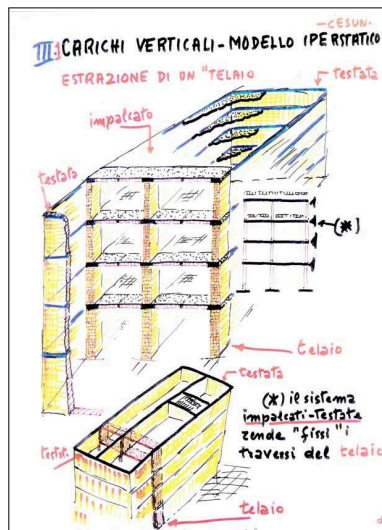 -CESUN-
III: CARICHI VERTICALI-MODELLO IPERSTATICO
ESTRAZIONE DI UN "TELAIO
testata
impalcato
testata
(*)
telaio
testata
(*) il sistema
impalcati-Testate
rende "fissi" i
traversi del telaio
telaio